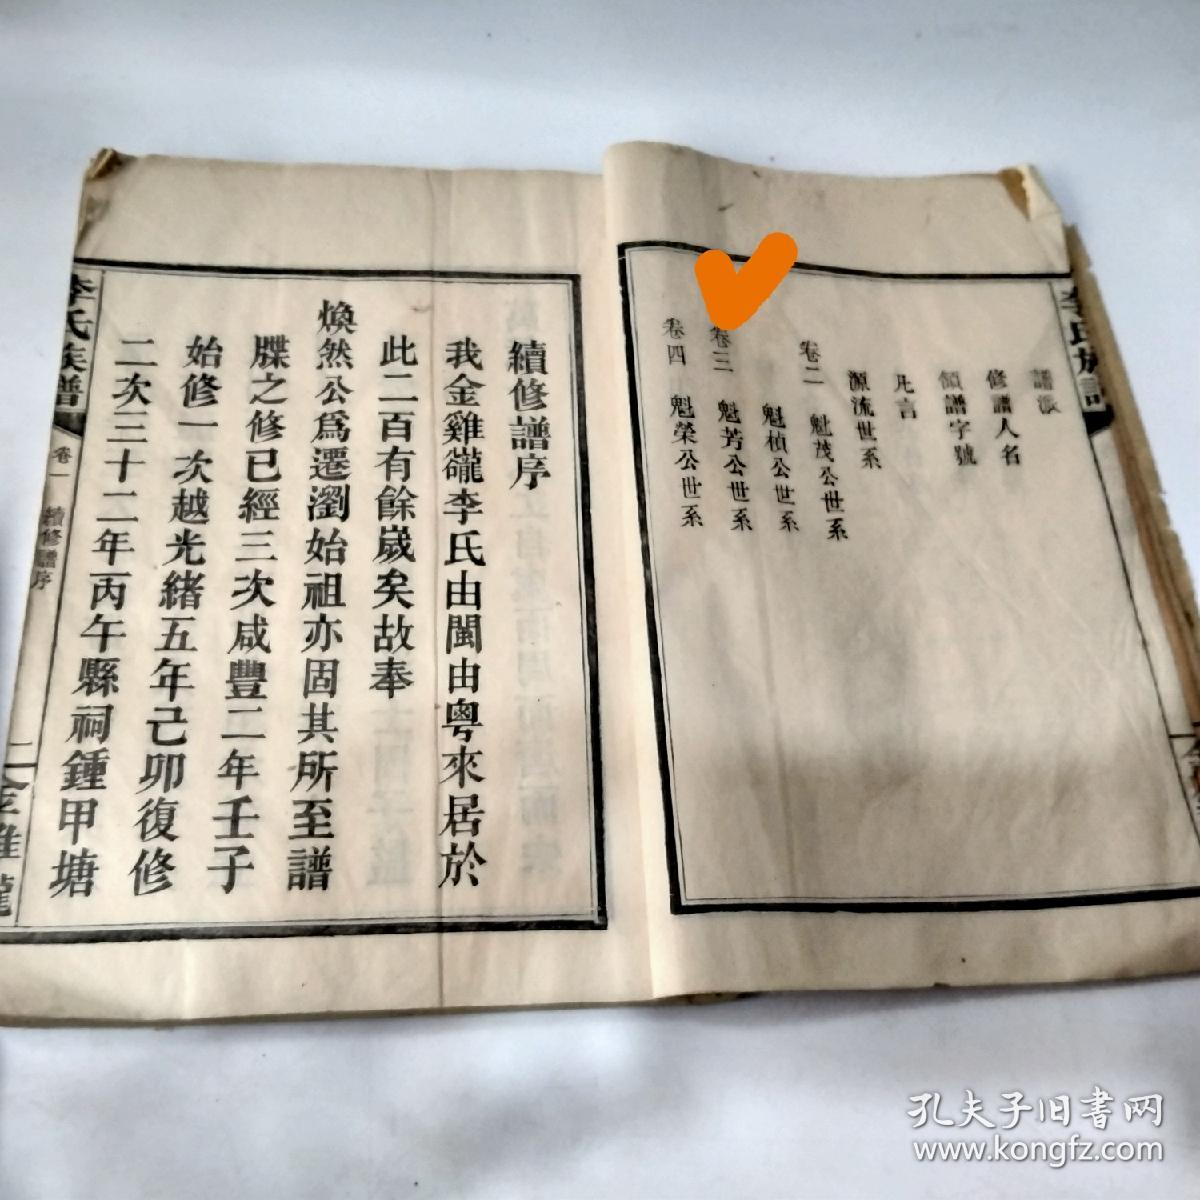 譜派
修譜人名
領譜字號
凡言
源流世系
卷二 魁茂公世系
魁楨公世系
卷三 魁芳公世系
卷四 魁榮公世系
續修譜序
我金雞巃李氏由閩由粵來居於
此二百有餘歲矣故奉
煥然公爲遷瀏始祖亦固其所至譜
牒之修已經三次咸豐二年壬子
始修一次越光緒五年己卯復修
二次三十二年丙午縣祠鍾甲塘
李氏族譜
卷一
續修譜序
二
孔夫子旧书网
www.kongfz.com